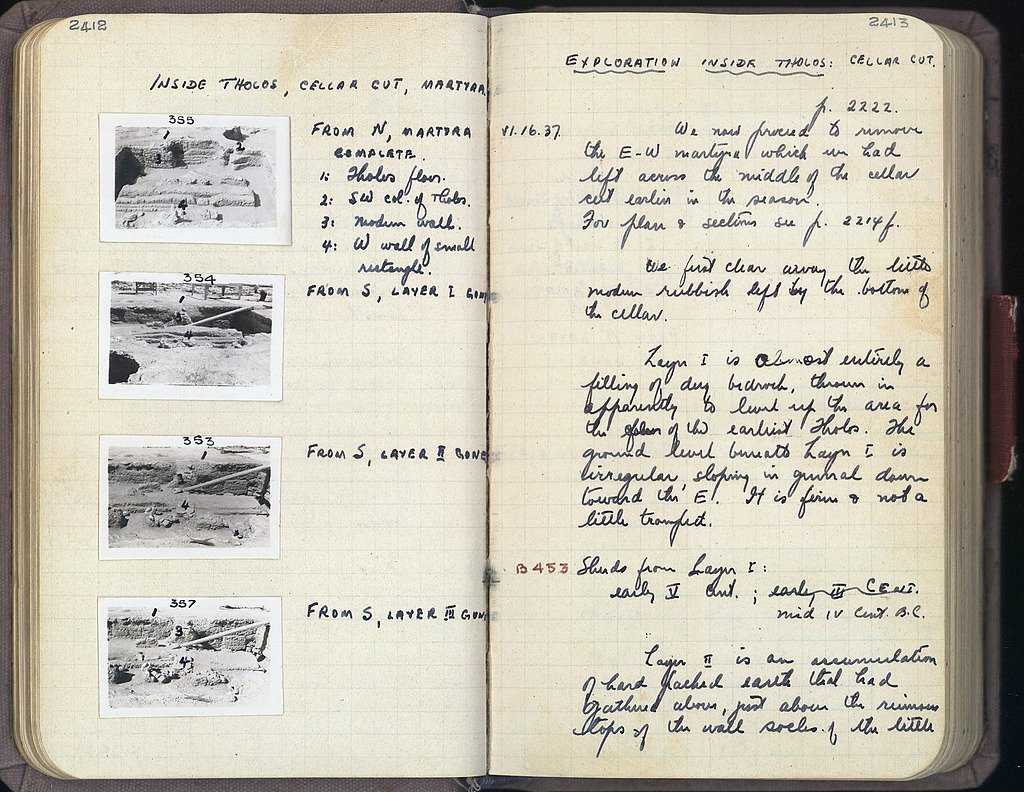 2412
INSIDE THOLOS, CELLAR CUT, MARTYRA
355
1
2
3
4
FROM N, MARTYRA
COMPLETE.
1: Tholos floor.
2: SW col. of Tholos.
3: modern wall.
4: W wall of small
rectangle.
354
4
FROM S, LAYER I GONE
353
4
FROM S, LAYER II GONE
357
3
4
FROM S, LAYER III GONE
2413
EXPLORATION INSIDE THOLOS: CELLAR CUT.
p. 2222.
VI.16.37. We now proceed to remove
the E-W martyra which we had
left across the middle of the cellar
cut earlier in the season.
For plan & sections see p. 2214f.
We first clear away the little
modern rubbish left by the bottom of
the cellar.
Layer I is almost entirely a
filling of dug bedrock, thrown in
apparently to level up the area for
the floor of the earliest Tholos. The
ground level beneath Layer I is
irregular, sloping in general down
toward the E. It is firm & not a
little tramped.
B453 Sherds from Layer I:
early V Cent. ; early III CENT.
mid IV Cent. B.C.
Layer II is an accumulation
of hard packed earth that had
gathered above, just above the ruinous
tops of the wall socles of the little